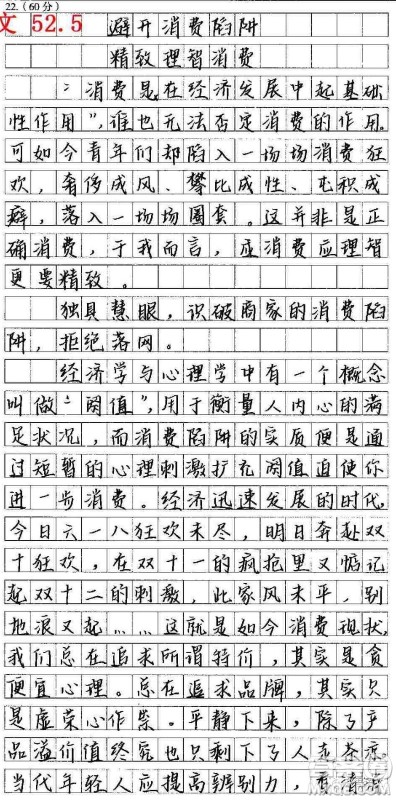 22.（60分）
文 52.5 避开消费陷阱
精致理智消费
“消费是在经济发展中起基础
性作用”，谁也无法否定消费的作用。
可如今青年们却陷入一场场消费狂
欢，奢侈成风、攀比成性、屯积成
癖，落入一场场圈套。这并非是正
确消费，于我而言，应消费应理智
更要精致。
独具慧眼，识破商家的消费陷
阱，拒绝落网。
经济学与心理学中有一个概念
叫做“阈值”，用于衡量人内心的满
足状况，而消费陷阱的实质便是通
过短暂的心理刺激扩充阈值迫使你
进一步消费。经济迅速发展的时代，
今日六一八狂欢未尽，明日奔赴双
十狂欢，在双十一的疯抢里又惦记
起双十二的刺激，此家风未平，别
地浪又起……这就是如今消费现状，
我们总在追求所谓特价，其实是贪
便宜心理。总在追求品牌，其实只
是虚荣心作祟。平静下来，除了产
品溢价值终究也只剩下了人走茶凉
当代年轻人应提高辨别力，看清